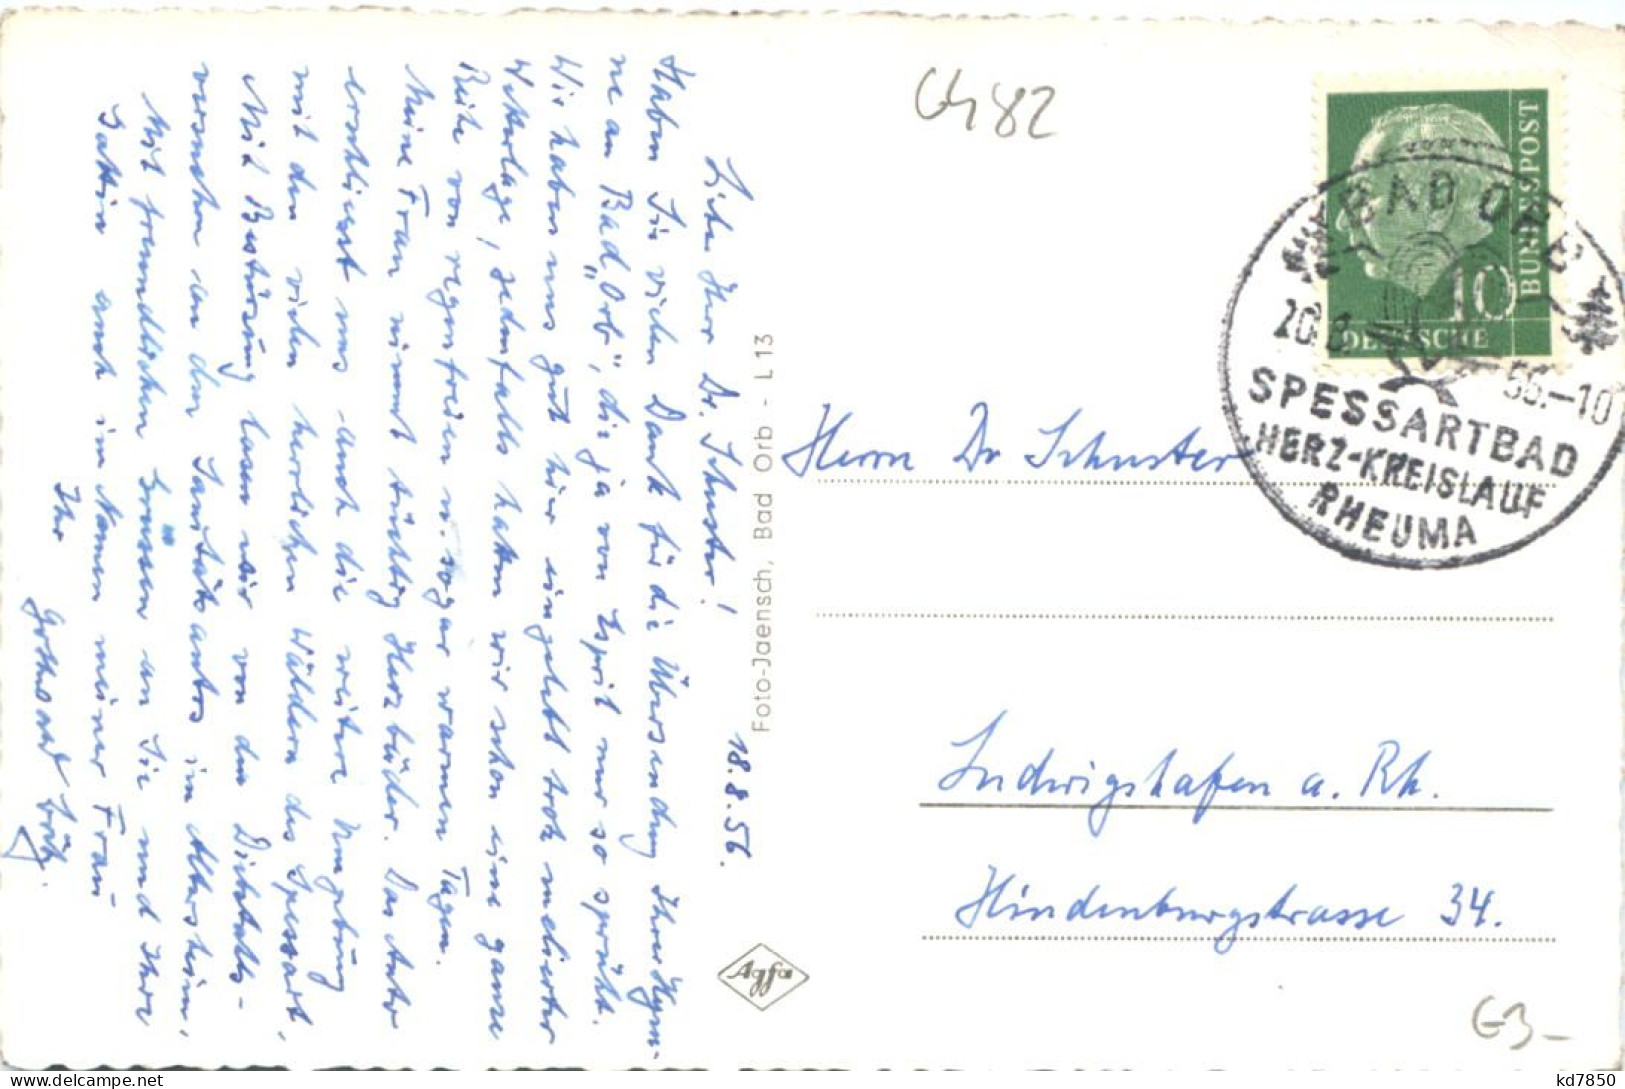 18.8.56.
Lieber Herr Dr. Schuster!
Haben Sie vielen Dank für die Übersendung Ihrer Hym-
ne an Bad „Orb", die ja von Esprit nur so sprüht.
Wir haben uns gut hier eingelebt trotz melierter
Wetterlage, jedenfalls hatten wir schon eine ganze
Reihe von regenfreien u. sogar warmen Tagen.
Meine Frau nimmt tüchtig Herzbäder. Das Auto
erschliesst uns auch die weitere Umgebung
mit den vielen herrlichen Wäldern des Spessart.
Mit Bestürzung lasen wir von den Diebstahls-
versuchen an den Sanitätsautos im Altersheim.
Mit freundlichen Grüssen an Sie und Ihre
Gattin auch im Namen meiner Frau
Ihr
Gotthard
Foto-Jaensch, Bad Orb - L 13
Agfa
G482
DEUTSCHE
BUNDESPOST
10
BAD ORB
56.-10
SPESSARTBAD
HERZ-KREISLAUF
RHEUMA
Herrn Dr Schuster
Ludwigshafen a. Rh.
Hindenburgstrasse 34.
G3-
kd7850